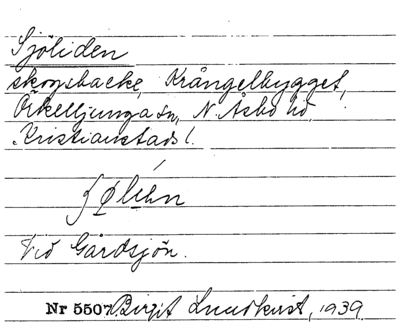 Sjöliden
skogsbacke, Krångelbygget,
Örkelljunga sn, N. Åsbo hd
Kristianstads l.
Vid Gårdsjön.
Nr 5507 Birgit Lundkvist, 1939